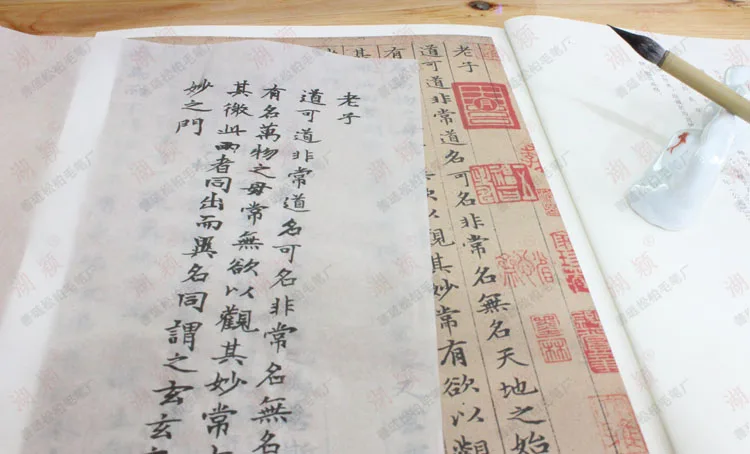 老子
道可道非常道名可名非常名無名天地之始
有
欲以觀其妙常有欲以觀
其
老子
道可道非常道名可名非常名無名
有名萬物之母常無欲以觀其妙常
其徼此兩者同出而異名同謂之玄玄
妙之門
湖颖®
善琏松柏毛笔厂